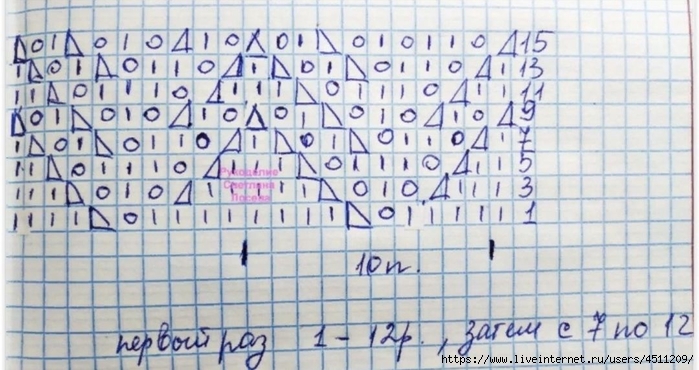 15
13
11
9
7
5
3
1
Рукоделие
Светлана
Лосева
10п.
первый раз 1 - 12р., затем с 7 по 12
https://www.liveinternet.ru/users/4511209/